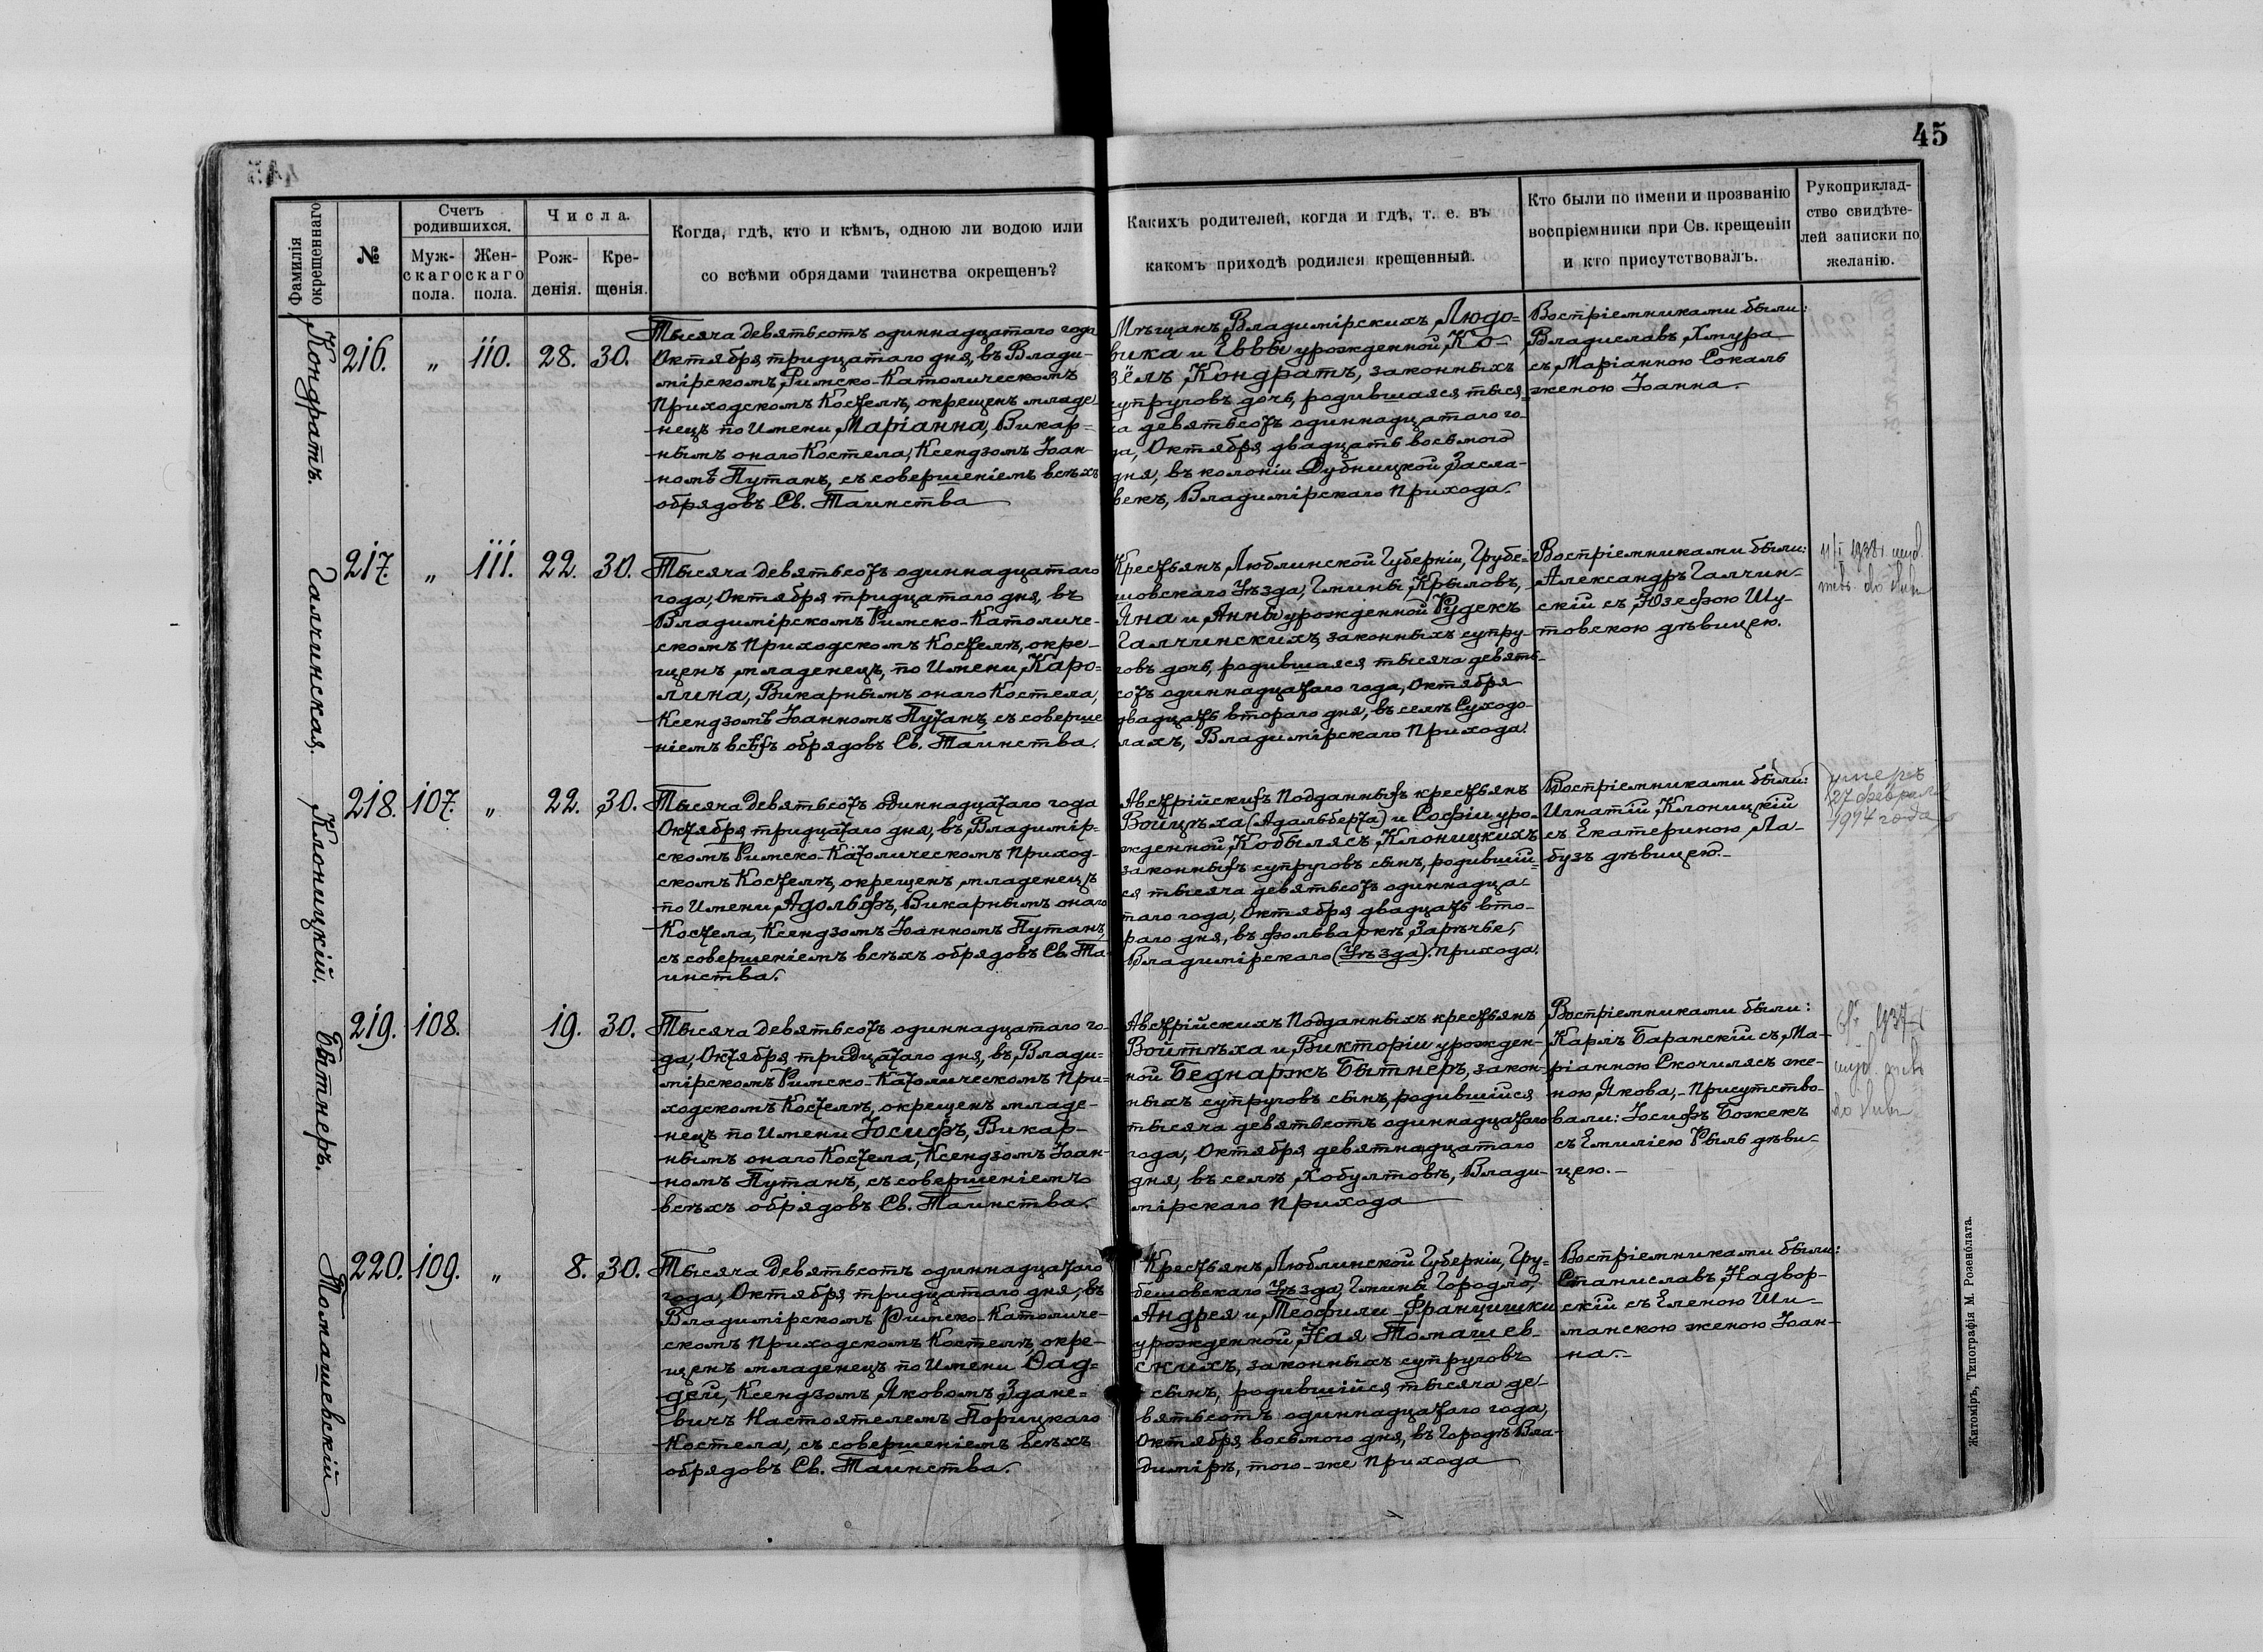 45
Фамилія окрещеннаго
№
Счетъ родившихся.
Муж-скаго пола.
Жен-скаго пола.
Числа.
Рож-денія.
Кре-щенія.
Когда, гдѣ, кто и кѣмъ, одною ли водою или
со всѣми обрядами таинства окрещенъ?
Какихъ родителей, когда и гдѣ, т. е. въ
какомъ приходѣ родился крещенный.
Кто были по имени и прозванію
воспріемники при Св. крещеніи
и кто присутствовалъ.
Рукоприклад-
ство свидѣте-
лей записки по
желанію.
Кондратъ.
216. „ 110. 28. 30.
Тысяча девятьсотъ одиннадцатаго года
Октября тридцатаго дня, въ Влади-
мірскомъ Римско-Католическомъ
Приходскомъ Костелѣ, окрещенъ младе
нецъ по Имени Маріанна, Викар=
нымъ онаго Костела, Ксендзомъ Іоан-
номъ Путанъ, съ совершеніемъ всѣхъ
обрядовъ Св. Таинства
Мѣщанъ Владимірскихъ, Людо=
вика и Еввы урожденной Ко-
зёлъ Кондратъ, законныхъ
супруговъ дочь, родившаяся тыся=
ча девятьсотъ одиннадцатаго го-
да, Октября двадцать восьмого
дня, въ колоніи Дубницкой Засла-
векъ, Владимірскаго Прихода.
Востріемниками были:
Владиславъ Хмура
съ Маріанною Сокаль
женою Іоанна.
Галчинская.
217. „ 111. 22. 30.
Тысяча девятьсотъ одиннадцатаго
года, Октября тридцатаго дня, въ
Владимірскомъ Римско-Католиче-
скомъ Приходскомъ Костелѣ, окре-
щенъ младенецъ, по Имени Каро=
лина, Викарнымъ онаго Костела,
Ксендзомъ Іоанномъ Путанъ, съ соверше
ніемъ всѣхъ обрядовъ Св. Таинства.
Крестьянъ Люблинской Губерніи, Грубе-
шовскаго Уѣзда, Гмины Крыловъ,
Яна и Анны урожденной Рудекъ
Галчинскихъ, законныхъ супру-
говъ дочь, родившаяся тысяча девять-
сотъ одиннадцатаго года, Октября
двадцать втораго дня, въ селѣ Суходо-
лахъ, Владимірскаго Прихода.
Востріемниками были:
Александръ Галчин-
скій съ Юзефою Шу-
товскою дѣвицею.
11/I 1938
Клоницкій.
218. 107. „ 22. 30.
Тысяча девятьсотъ одиннадцатаго года
Октября тридцатаго дня, въ Владимір-
скомъ Римско-Католическомъ Приход-
скомъ Костелѣ, окрещенъ младенецъ
по Имени Адольфъ, Викарнымъ онаго
Костела, Ксендзомъ Іоанномъ Путанъ,
съ совершеніемъ всѣхъ обрядовъ Св. Та-
инства.
Австрійскихъ Подданныхъ крестьянъ
Войцѣха (Адальберта) и Софіи уро-
жденной Кобылясъ, Клоницкихъ
законныхъ супруговъ сынъ, родившій-
ся тысяча девятьсотъ одиннадца-
таго года, Октября двадцать вто-
раго дня, въ фольваркѣ Зарѣчье,
Владимірскаго (Уѣзда). Прихода.
Востріемниками были:
Игнатій Клоницкій
съ Екатериною Ла-
бузъ дѣвицею.-
умеръ
27 февраля
1914 года
Бытнеръ.
219. 108. 19. 30.
Тысяча девятьсотъ одиннадцатаго го-
да, Октября тридцатаго дня, въ Влади=
мірскомъ Римско-Католическомъ При=
ходскомъ Костелѣ, окрещенъ младе-
нецъ по Имени Іосифъ, Викар-
нымъ онаго Костела, Ксендзомъ Іоан-
номъ Путанъ, съ совершеніемъ
всѣхъ обрядовъ Св. Таинства.
Австрійскихъ Подданныхъ крестьянъ
Войтѣха и Викторіи урожден-
ной Беднаржъ Бытнеръ, закон-
ныхъ супруговъ сынъ, родившійся
тысяча девятьсотъ одиннадцатаго
года, Октября девятнадцатаго
дня, въ селѣ Хобултовъ, Влади-
мірскаго Прихода
Востріемниками были:
Карлъ Баранскій съ Ма-
ріанною Скочилясъ же-
ною Якова,- Присутство-
вали: Іосифъ Божекъ
съ Емиліею Рыль дѣви-
цею.-
1937
Томашевскій
220. 109. „ 8. 30.
Тысяча девятьсотъ одиннадцатаго
года, Октября тридцатаго дня, въ
Владимірскомъ Римско-Католиче-
скомъ Приходскомъ Костелѣ, окре-
щенъ младенецъ по Имени Фад=
дей, Ксендзомъ Яковомъ Здане=
вичъ Настоятелемъ Порицкаго
Костела, съ совершеніемъ всѣхъ
обрядовъ Св. Таинства.
Крестьянъ Люблинской Губерніи, Гру-
бешовскаго Уѣзда, Гмины Городло,
Андрея и Теофили-Францишки
урожденной Ная Томашев-
скихъ, законныхъ супруговъ
сынъ, родившійся тысяча де-
вятьсотъ одиннадцатаго года,
Октября восьмого дня, въ Городѣ Вла-
димірѣ, того-же Прихода
Востріемниками были:
Станиславъ Надвор-
скій съ Еленою Ши-
манскою женою Іоан-
на.-
Житоміръ, Типографія М. Розенблата.